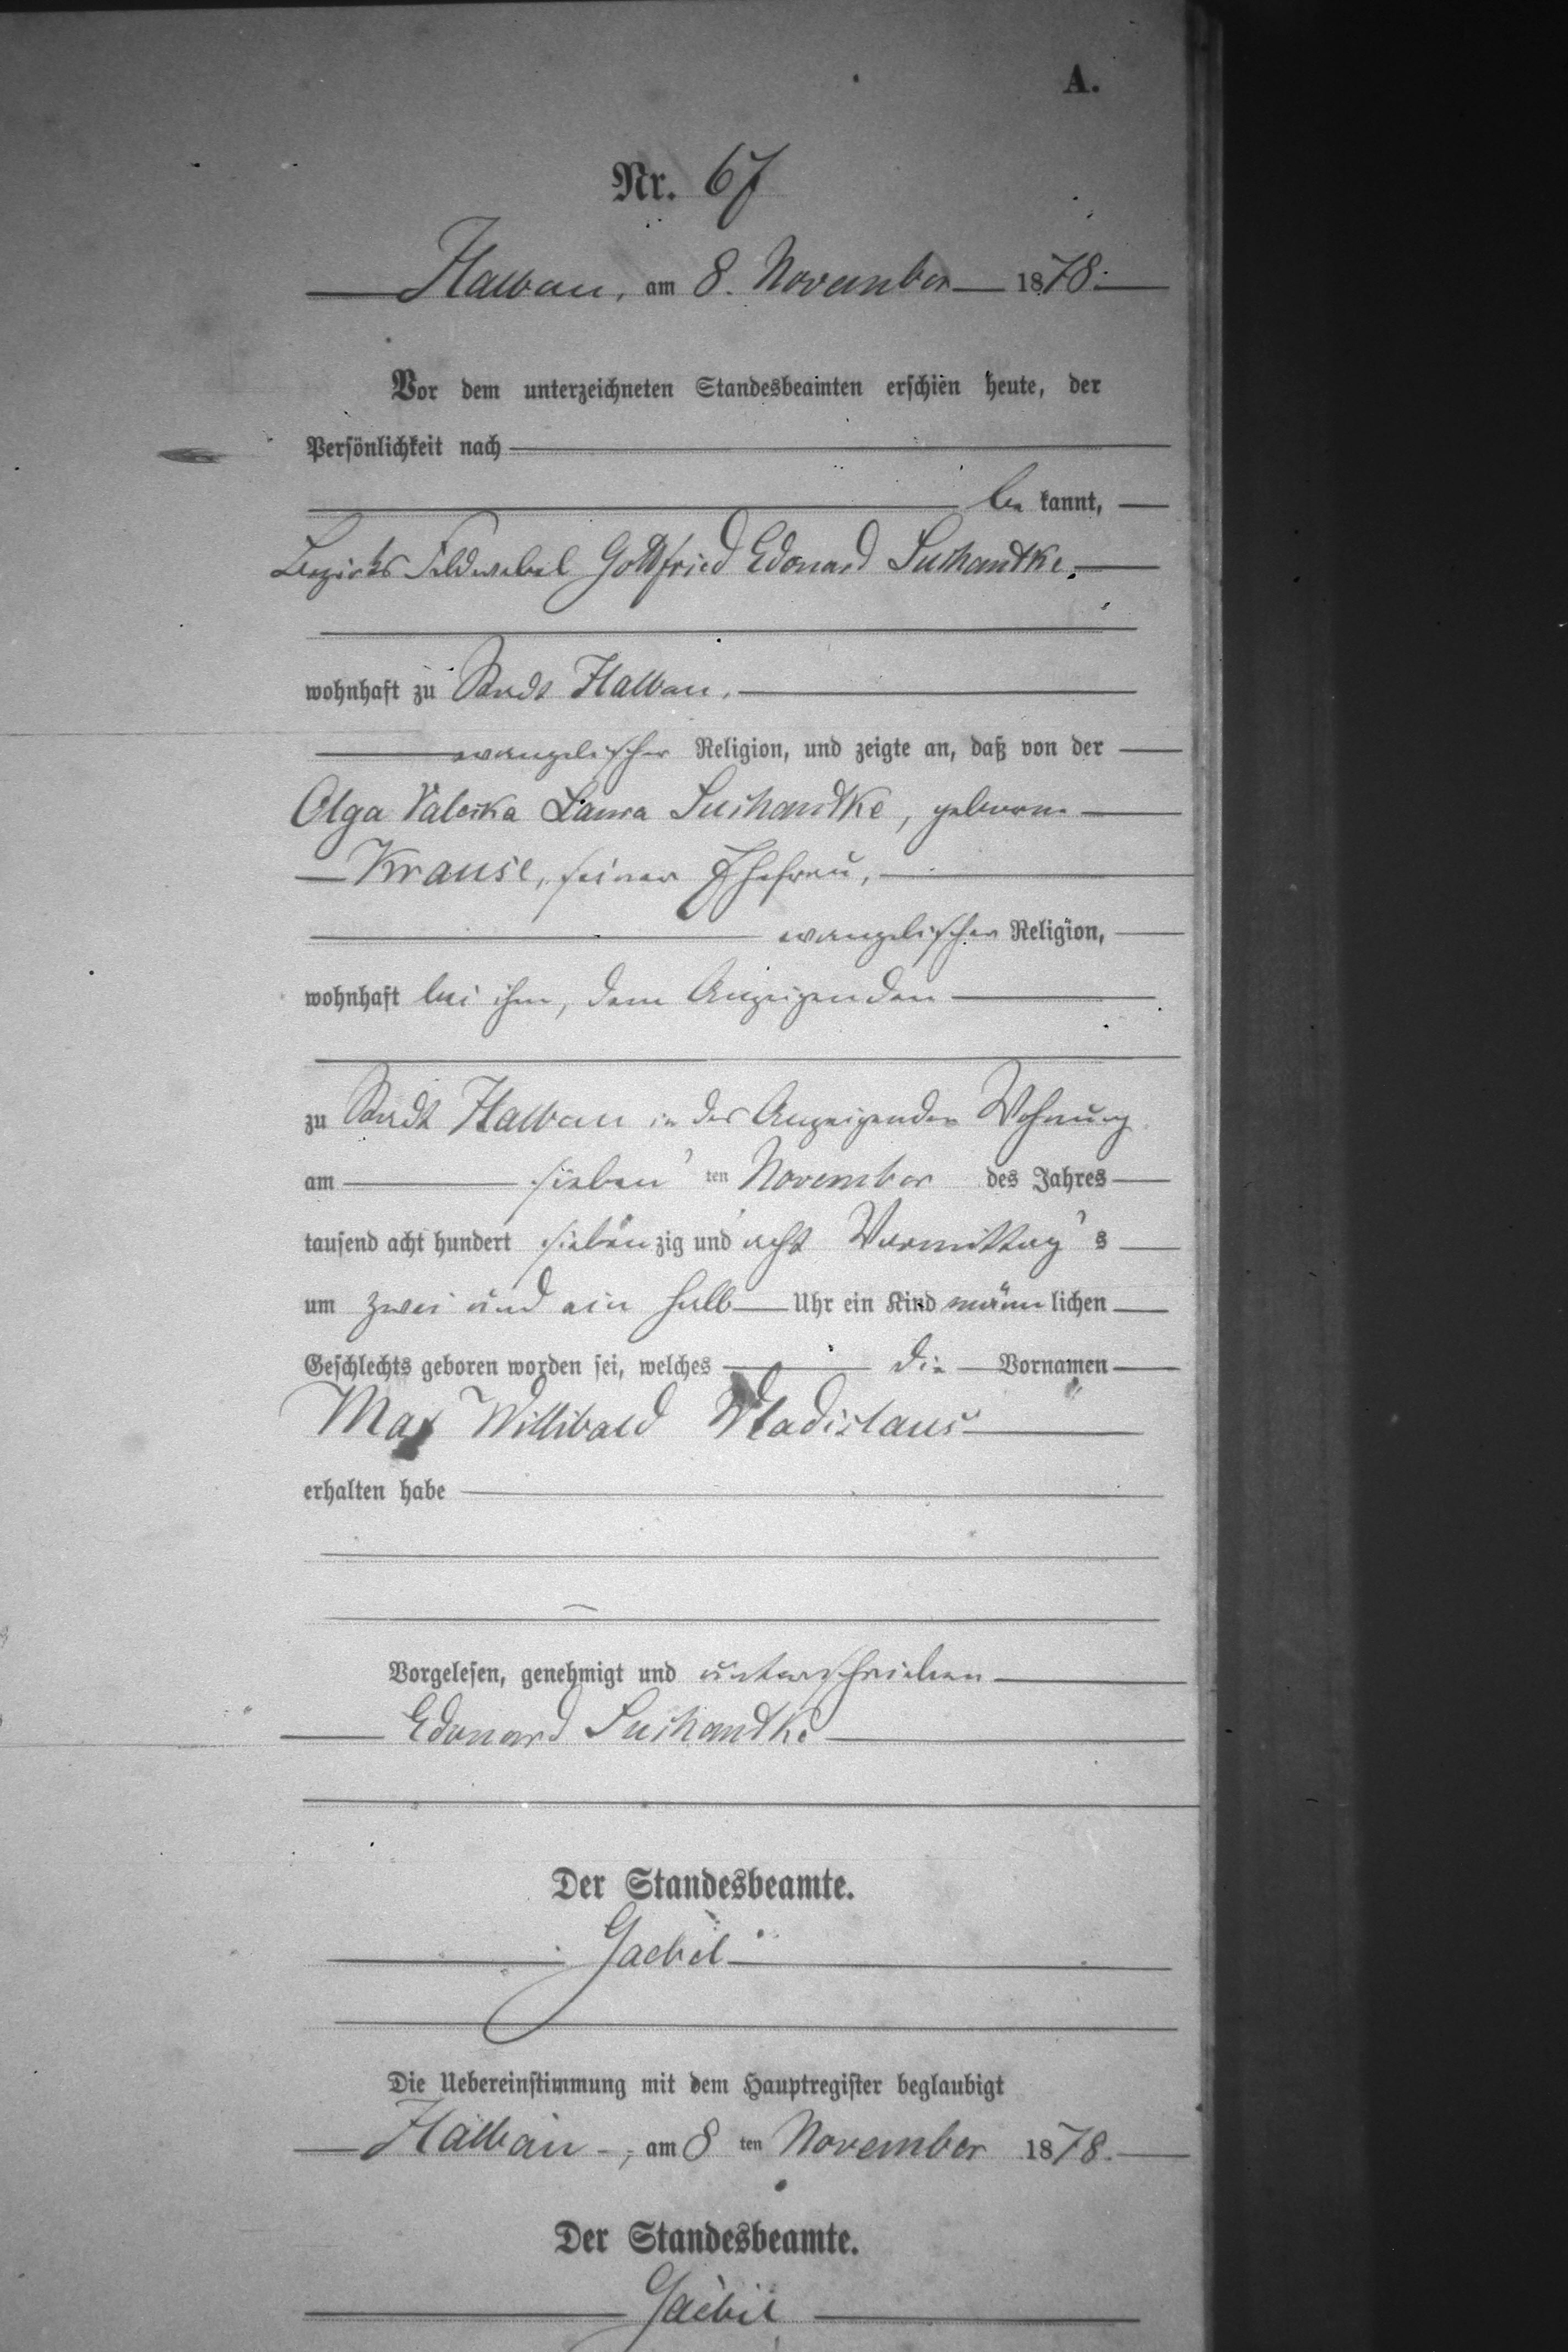 A.
Nr. 67
Halbau, am 8. November 1878.
Vor dem unterzeichneten Standesbeamten erschien heute, der
Persönlichkeit nach
be kannt,
Bezirks Feldwebel Gottfried Edouard Suchandke,
wohnhaft zu Stadt Halbau,
evangelischer Religion, und zeigte an, daß von der
Olga Valeska Laura Suchandke, geborne
Krause, seiner Ehefrau,
evangelischer Religion,
wohnhaft bei ihm, dem Anzeigenden
zu Stadt Halbau in des Anzeigenden Wohnung
am sieben ten November des Jahres
tausend acht hundert sieben zig und acht Vormittag s
um zwei und ein halb Uhr ein Kind männ lichen
Geschlechts geboren worden sei, welches die Vornamen
Max Willibald Wladislaus
erhalten habe
Vorgelesen, genehmigt und unterschrieben
Edouard Suchandke
Der Standesbeamte.
Gaebel
Die Uebereinstimmung mit dem Hauptregister beglaubigt
Halbau, am 8 ten November 1878.
Der Standesbeamte.
Gaebel